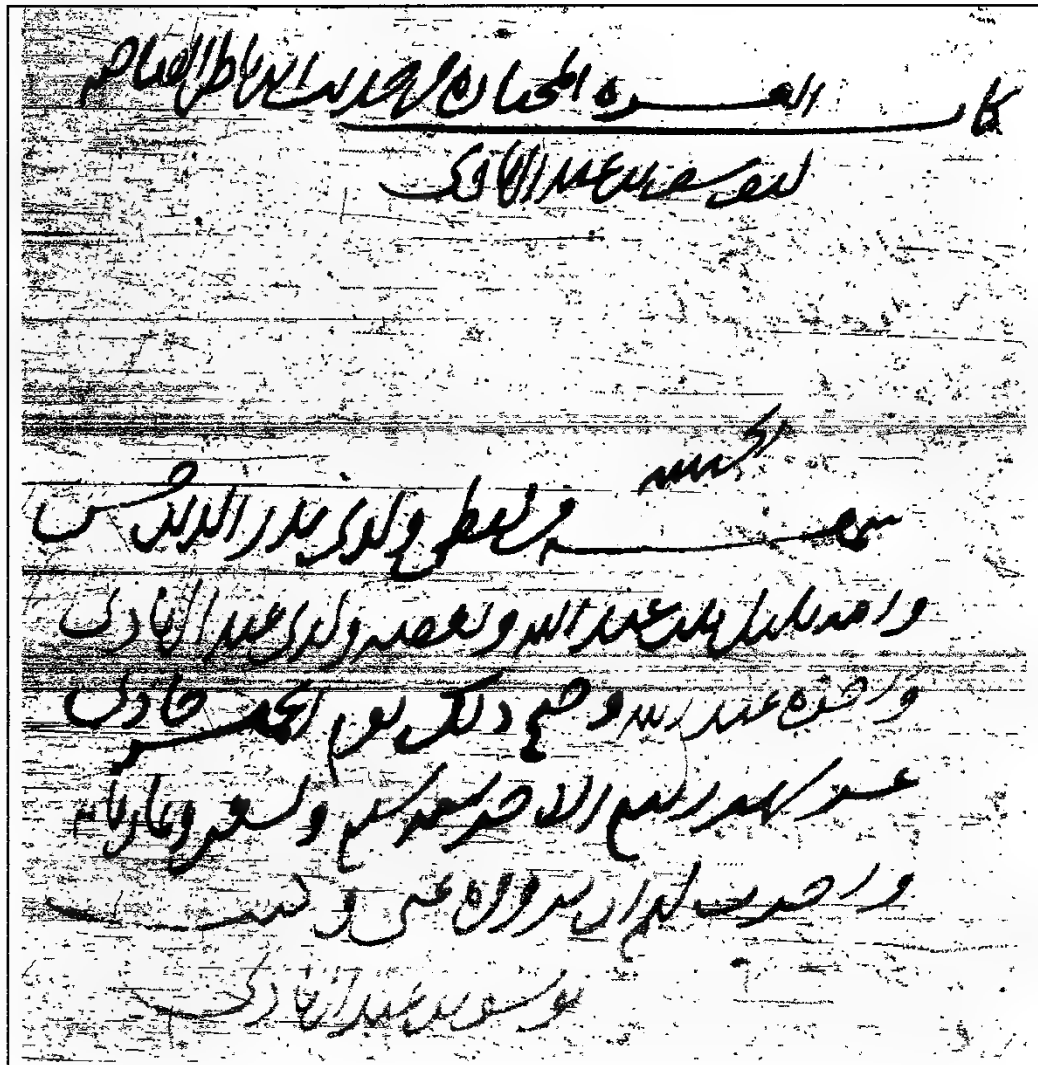 كتاب العشره المختاره من حديث ابن ناظر الصاحبه
ليوسف بن عبد الهادي
الحمد لله
سمعه من لفظي ولدي بدر الدين حسن
وامه بلبل بنت عبد الله وبعضه ولدي عبد الهادي
واخوه عبد الله وصح ذلك يوم الخميس حادي
عشر شهر ربيع الاخر سنه سبع وتسعين وثمانمائه
واجزت لهم ان يرووه عني وكتب
يوسف بن عبد الهادي